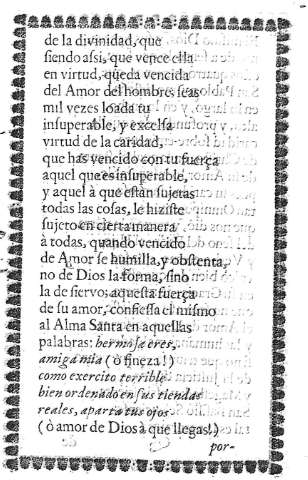 de la divinidad, que
siendo assi, que vence ella
en virtud, queda vencida
del Amor del hombre, seas
mil vezes loada tu
insuperable, y excelsa
virtud de la caridad,
que has vencido con tu fuerça
aquel que es insuperable,
y aquel à que estàn sujetas
todas las cosas, le hiziste
sujeto en cierta manera
à todas, quando vencido
de Amor se humilla, y obstenta,
no de Dios la forma, sino
la de siervo; aquesta fuerça
de su amor, confiessa el mismo
al Alma Santa en aquellas
palabras: hermosa eres,
amiga mia (ò fineza!)
como exercito terrible
bien ordenado en sus tiendas
reales, aparta tus ojos
(ò amor de Dios à que llegas!)
por-